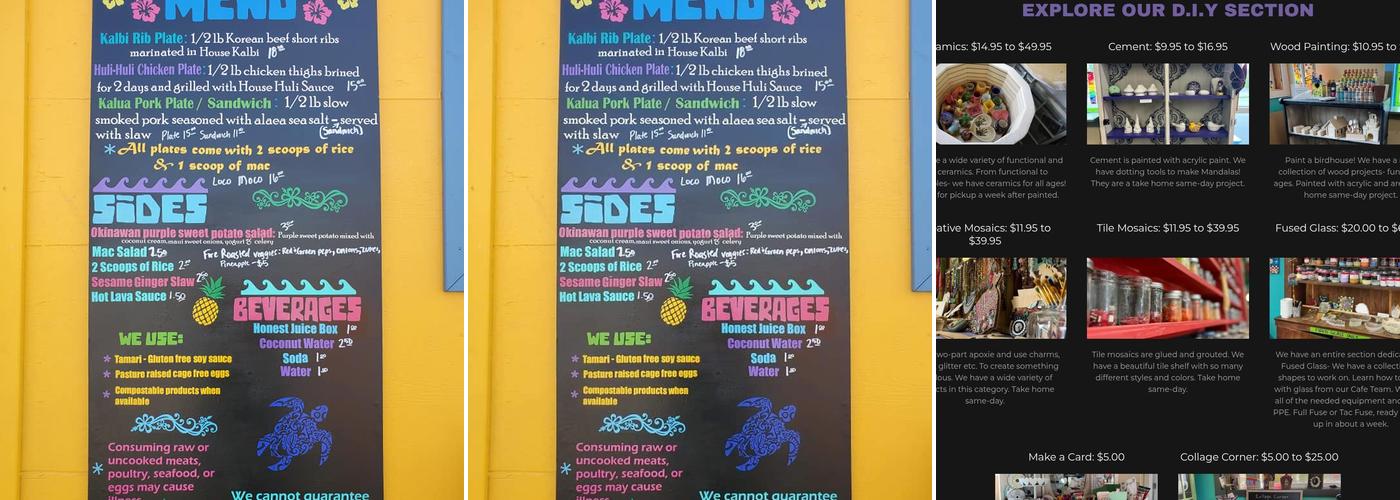 MENU
Kalbi Rib Plate: 1/2 lb Korean beef short ribs
marinated in House Kalbi 18⁰⁰
Huli-Huli Chicken Plate: 1/2 lb chicken thighs brined
for 2 days and grilled with House Huli Sauce 15⁰⁰
Kalua Pork Plate / Sandwich: 1/2 lb slow
smoked pork seasoned with alaea sea salt - served
with slaw Plate 15⁰⁰ Sandwich 11⁰⁰ (Sandwich)
*All plates come with 2 scoops of rice
& 1 scoop of mac
Loco Moco 16⁰⁰
SIDES
Okinawan purple sweet potato salad: Purple sweet potato mixed with
coconut cream, maui sweet onions, yogurt & celery
Mac Salad 2.50 Fire Roasted veggies: Red & Green peps, onions, zukes,
2 Scoops of Rice Pineapple
Sesame Ginger Slaw
Hot Lava Sauce 1.50
BEVERAGES
Honest Juice Box
Coconut Water
Soda
Water
WE USE:
* Tamari - Gluten free soy sauce
* Pasture raised cage free eggs
* Compostable products when
available
* Consuming raw or
uncooked meats,
poultry, seafood, or
eggs may cause
illness
We cannot guarantee
MENU
Kalbi Rib Plate: 1/2 lb Korean beef short ribs
marinated in House Kalbi 18⁰⁰
Huli-Huli Chicken Plate: 1/2 lb chicken thighs brined
for 2 days and grilled with House Huli Sauce 15⁰⁰
Kalua Pork Plate / Sandwich: 1/2 lb slow
smoked pork seasoned with alaea sea salt - served
with slaw Plate 15⁰⁰ Sandwich 11⁰⁰ (Sandwich)
*All plates come with 2 scoops of rice
& 1 scoop of mac
Loco Moco 16⁰⁰
SIDES
Okinawan purple sweet potato salad: Purple sweet potato mixed with
coconut cream, maui sweet onions, yogurt & celery
Mac Salad 2.50 Fire Roasted veggies: Red & Green peps, onions, zukes,
2 Scoops of Rice Pineapple
Sesame Ginger Slaw
Hot Lava Sauce 1.50
BEVERAGES
Honest Juice Box
Coconut Water
Soda
Water
WE USE:
* Tamari - Gluten free soy sauce
* Pasture raised cage free eggs
* Compostable products when
available
* Consuming raw or
uncooked meats,
poultry, seafood, or
eggs may cause
illness
We cannot guarantee
EXPLORE OUR D.I.Y SECTION
amics: $14.95 to $49.95
e a wide variety of functional and
ceramics. From functional to
les- we have ceramics for all ages!
for pickup a week after painted.
Cement: $9.95 to $16.95
Cement is painted with acrylic paint. We
have dotting tools to make Mandalas!
They are a take home same-day project.
Wood Painting: $10.95 to
Paint a birdhouse! We have a
collection of wood projects- fun
ages. Painted with acrylic and ar
home same-day project.
ative Mosaics: $11.95 to
$39.95
wo-part apoxie and use charms,
glitter etc. To create something
lous. We have a wide variety of
cts in this category. Take home
same-day.
Tile Mosaics: $11.95 to $39.95
Tile mosaics are glued and grouted. We
have a beautiful tile shelf with so many
different styles and colors. Take home
same-day.
Fused Glass: $20.00 to $6
We have an entire section dedic
Fused Glass- We have a collecti
shapes to work on. Learn how t
with glass from our Cafe Team. W
all of the needed equipment and
PPE. Full Fuse or Tac Fuse, ready
up in about a week.
Make a Card: $5.00
Collage Corner: $5.00 to $25.00